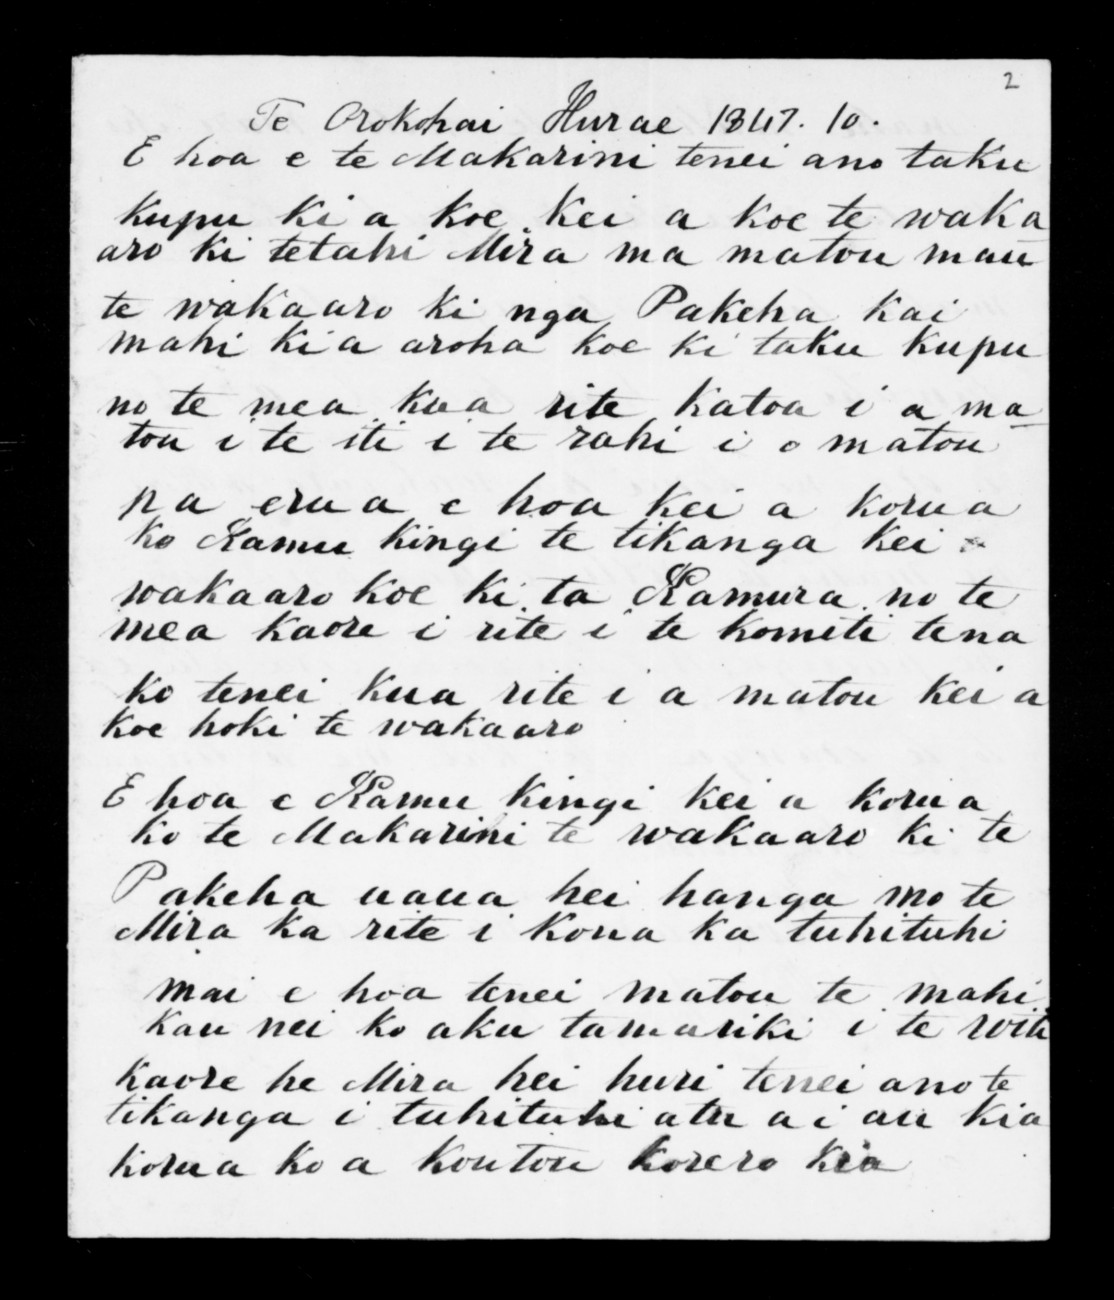 2
Te Orokohai Hurae 1847. 10.
E hoa e te Makarini tenei ano taku
kupu ki a koe kei a koe te waka
aro ki tetahi Mira ma matou mau
te wakaaro ki nga Pakeha kai
mahi kia aroha koe ki taku kupu
no te mea kua rite katoa i a ma
tou i te iti i te rahi i o matou
pa erua e hoa kei a korua
ko Kamu kingi te tikanga kei
wakaaro koe ki ta Kamura no te
mea kaore i rite i te komiti tena
ko tenei kua rite i a matou kei a
koe hoki te wakaaro
E hoa e Kamu kingi kei a korua
ko te Makarini te wakaaro ki te
Pakeha uaua hei hanga mo te
Mira ka rite i kona ka tuhituhi
mai e hoa tenei matou te mahi
kau nei ko aku tamariki i te witi
kaore he Mira hei huri tenei ano te
tikanga i tuhituhi atu ai au kia
korua ko a koutou korero kia